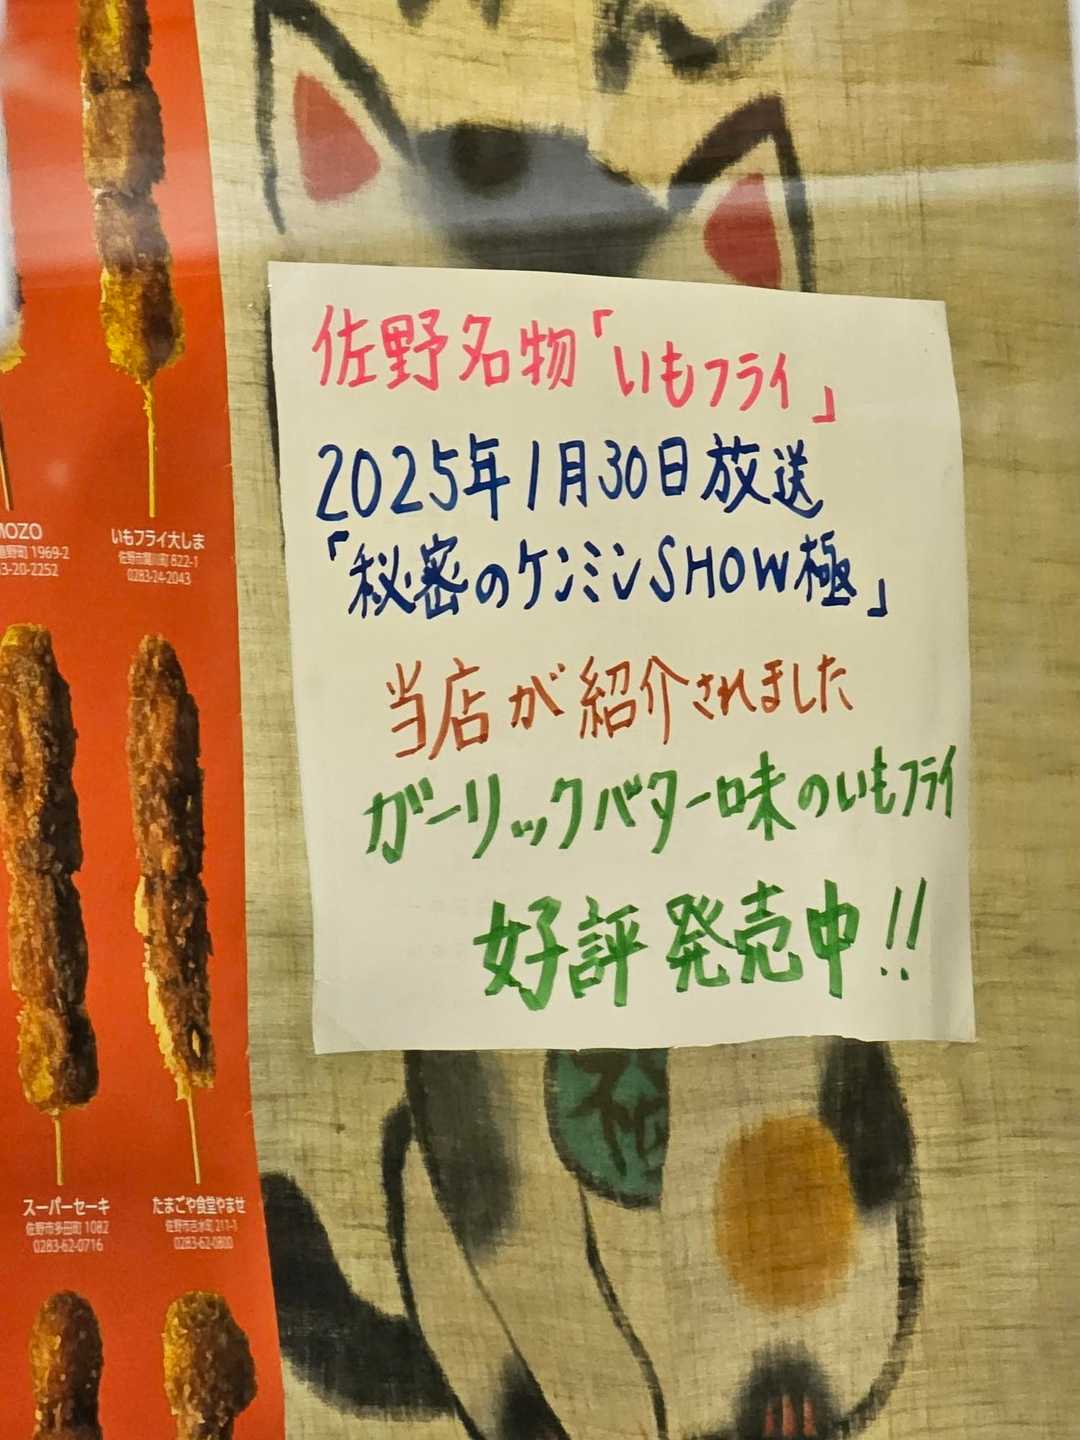 佐野名物「いもフライ」
2025年1月30日放送
「秘密のケンミンSHOW極」
当店が紹介されました
ガーリックバター味のいもフライ
好評発売中!!
MOZO
1969-2
20-2252
いもフライ大しま
822-1
0283-24-2043
スーパーセーキ
佐野市多田町 1082
0283-62-0716
たまごや食堂やませ
211-1
0283-62-0800